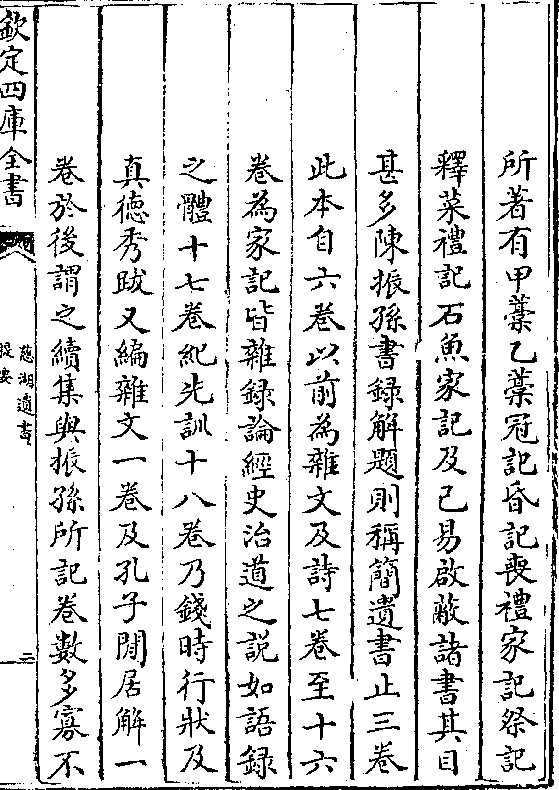 所著有甲藁乙藁冠記昏記喪禮家記祭記
釋菜禮記石魚家記及己易啟蔽諸書其目
甚多陳振孫書録解題則稱簡遺書止三卷
此本自六卷以前為雜文及詩七卷至十六
卷為家記皆雜録論經史治道之説如語録
之體十七卷紀先訓十八卷乃錢時行狀及
真徳秀跋又編雜文一卷及孔子閒居解一
卷於後謂之續集與振孫所記卷數多寡不
欽定四庫全書
慈湖遺書
提要
二